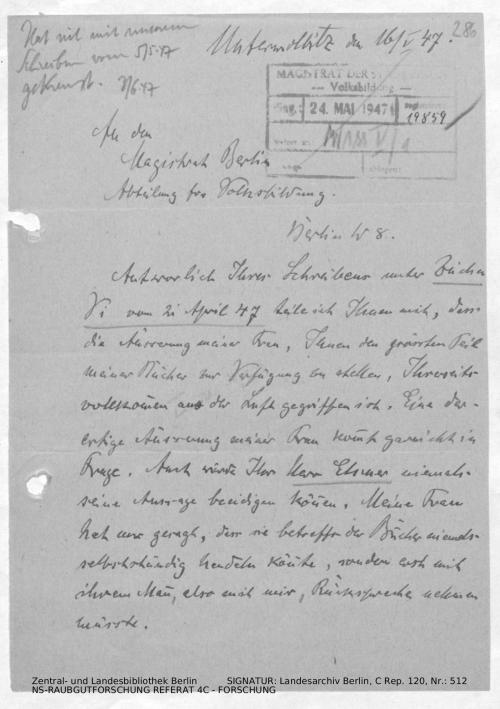 Hat sich mit unserem
Schreiben vom 5/5.47
gekreuzt. 7/6 47
280
den 16/V 47.
MAGISTRAT DER
Volksbildung
24. MAI 1947
19859
An den
Magistrat Berlin
Abteilung für Volksbildung.
Berlin W 8.
Antwortlich Ihres Schreibens unter
Vi vom 21 April 47 teile ich Ihnen mit, dass
die Äusserung meiner Frau, Ihnen den grössten Teil
meiner Bücher zur Verfügung zu stellen, Ihrerseits
vollkommen aus der Luft gegriffen ist. Eine der-
artige Äusserung meiner Frau kommt garnicht in
Frage. Auch würde Ihr Herr Elsner niemals
seine Aussage beeidigen können. Meine Frau
hat nur gesagt, dass sie betreffs der Bücher niemals
selbstständig handeln könnte, sondern erst mit
ihrem Mann, also mit mir, Rücksprache nehmen
müsste.
Zentral- und Landesbibliothek Berlin SIGNATUR: Landesarchiv Berlin, C Rep. 120, Nr.: 512
NS-RAUBGUTFORSCHUNG REFERAT 4C - FORSCHUNG